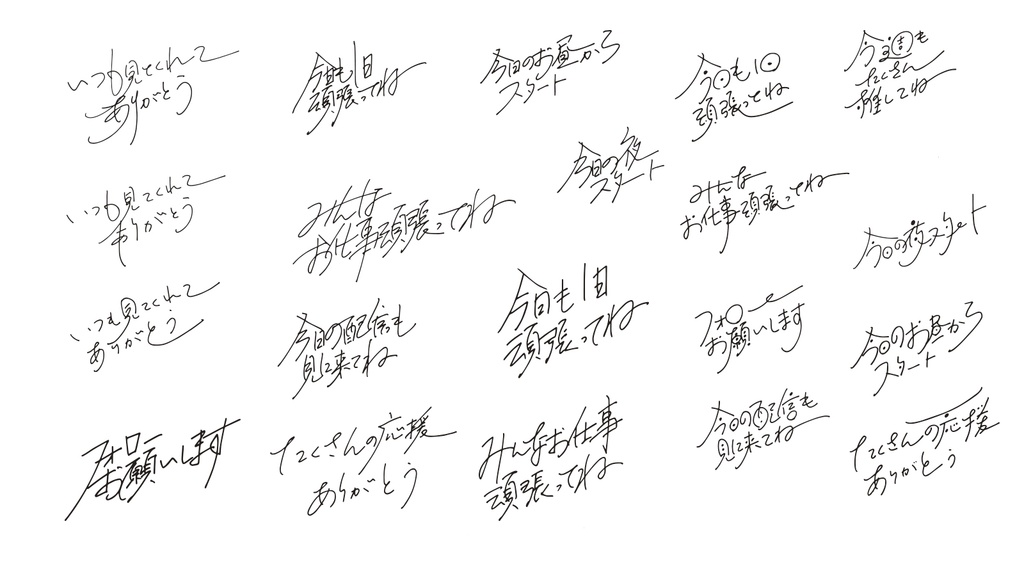 いつも見てくれて
ありがとう
今日も1日
頑張ってね
今日のお昼から
スタート
今日も1日
頑張ってね
今週も
たくさん
推してね
今日の夜
スタート
いつも見てくれて
ありがとう
みんな
お仕事頑張ってね
みんな
お仕事頑張ってね
今日の夜スタート
いつも見てくれて
ありがとう
今日の配信も
見に来てね
今日も1日
頑張ってね
フォロー
お願いします
今日のお昼から
スタート
フォロー
お願いします
たくさんの応援
ありがとう
みんなお仕事
頑張ってね
今日の配信も
見に来てね
たくさんの応援
ありがとう